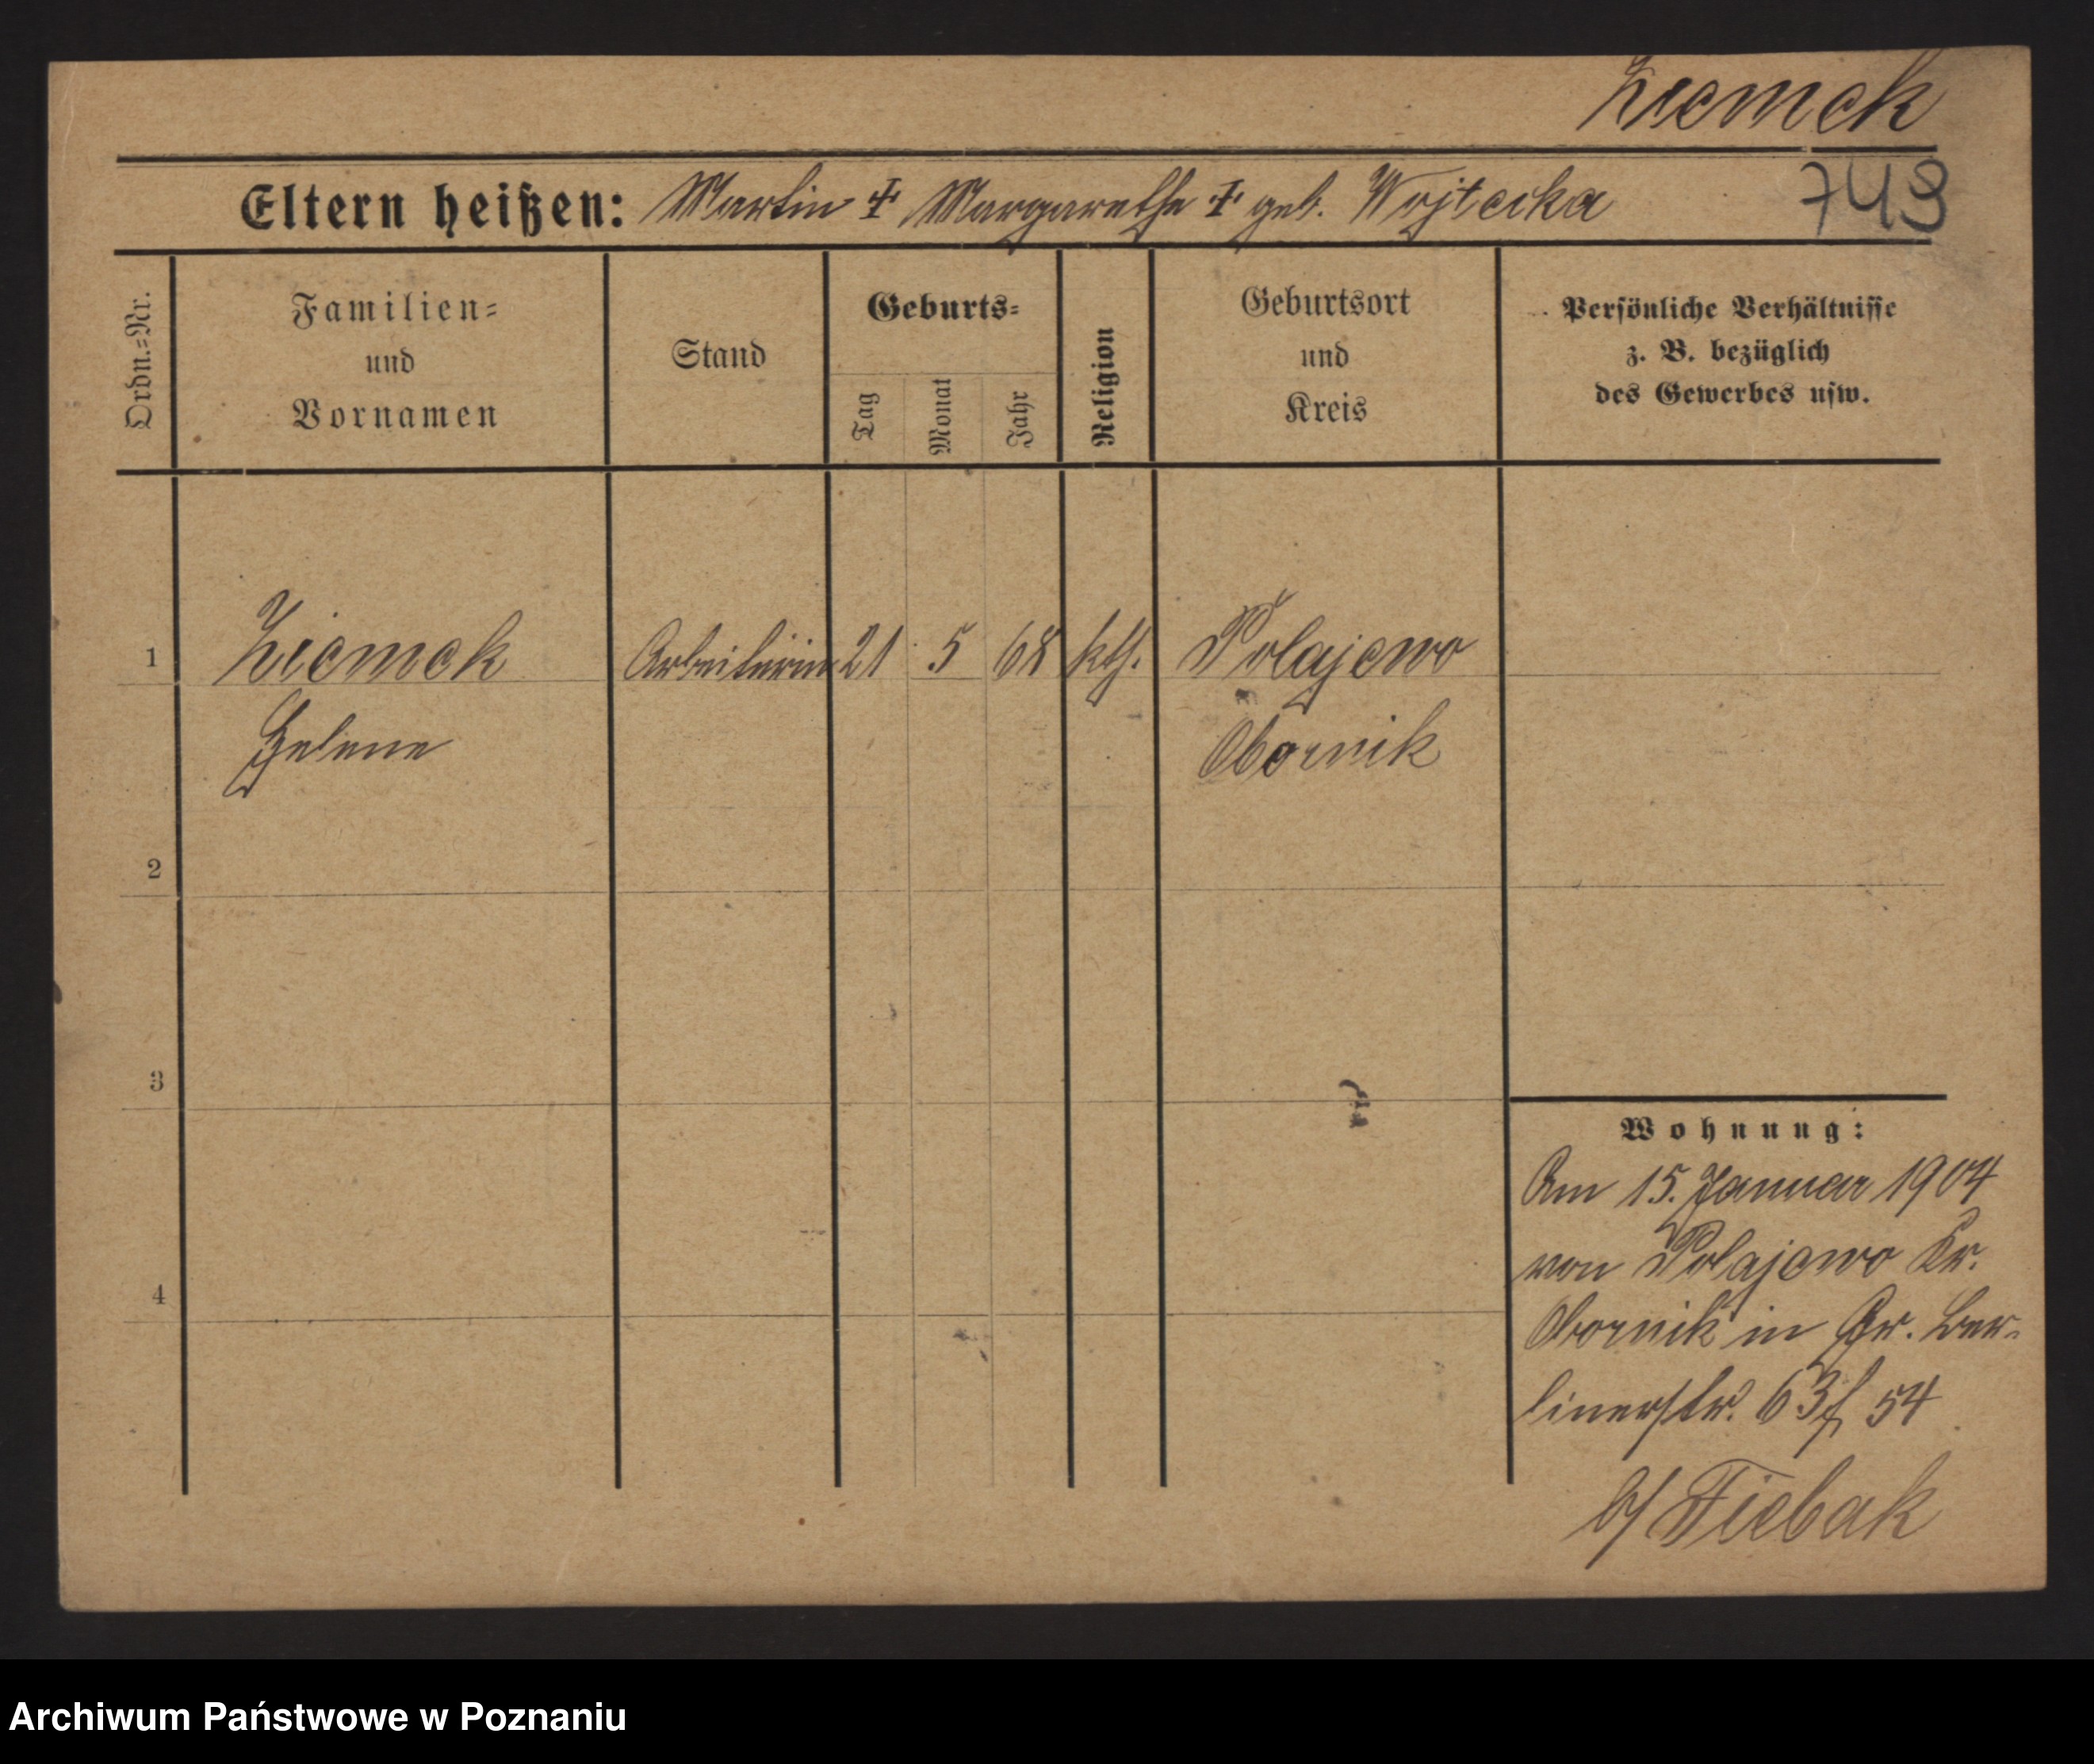 Ziemek
Eltern heißen: Martin ‡ Margarethe ‡ geb. Wojtecka
749
Ordn.=Nr.
Familien=
und
Vornamen
Stand
Geburts=
Tag
Monat
Jahr
Religion
Geburtsort
und
Kreis
Persönliche Verhältnisse
z. B. bezüglich
des Gewerbes usw.
1 Ziemek Arbeiterin 21 5 68 kth. Polajewo
Helene Obornik
2
3
4
Wohnung:
Am 15. Januar 1904
von Polajewo Kr.
Obornik in Gr. Ber-
linerstr. 63 54
b/ Fiebak
Archiwum Państwowe w Poznaniu